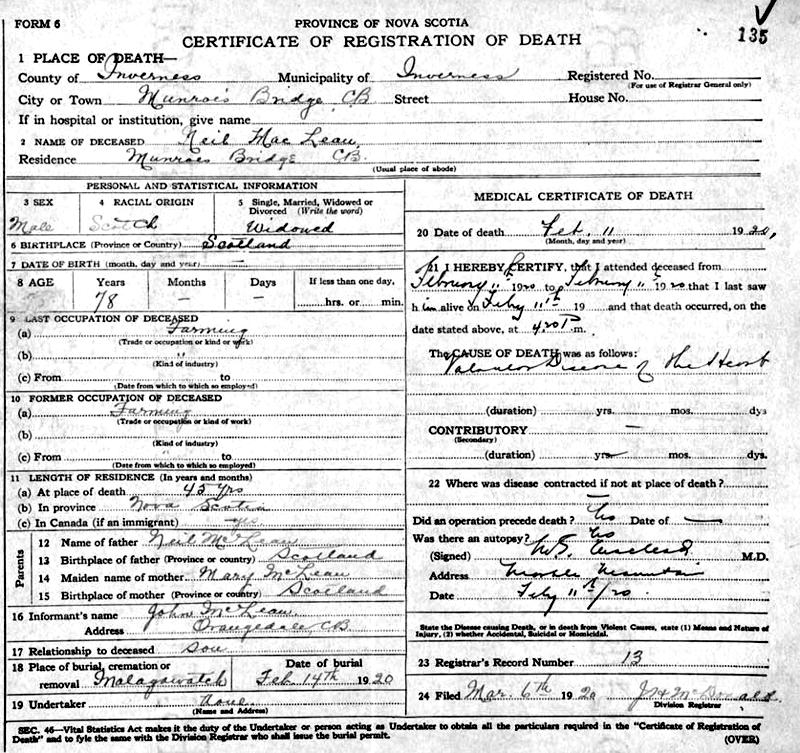 FORM 6
PROVINCE OF NOVA SCOTIA
CERTIFICATE OF REGISTRATION OF DEATH
135
1 PLACE OF DEATH—
County of Inverness Municipality of Inverness Registered No.
(For use of Registrar General only)
City or Town Munroes Bridge CB Street House No.
If in hospital or institution, give name
2 NAME OF DECEASED Neil MacLean
Residence Munroes Bridge CB.
(Usual place of abode)
PERSONAL AND STATISTICAL INFORMATION
3 SEX 4 RACIAL ORIGIN 5 Single, Married, Widowed or Divorced (Write the word)
Male Scotch Widowed
6 BIRTHPLACE (Province or Country) Scotland
7 DATE OF BIRTH (month, day and year) —
8 AGE Years Months Days If less than one day,
78 — — hrs. or min.
9 LAST OCCUPATION OF DECEASED
(a) Farming
(Trade or occupation or kind of work)
(b) "
(Kind of industry)
(c) From to
(Date from which to which so employed)
10 FORMER OCCUPATION OF DECEASED
(a) Farming
(Trade or occupation or kind of work)
(b)
(Kind of industry)
(c) From to
(Date from which to which so employed)
11 LENGTH OF RESIDENCE (In years and months)
(a) At place of death 45 yrs
(b) In province Nova Scotia
(c) In Canada (if an immigrant) yes
Parents
12 Name of father Neil McLean
13 Birthplace of father (Province or country) Scotland
14 Maiden name of mother Mary McLean
15 Birthplace of mother (Province or country) Scotland
16 Informant's name John McLean
Address Orangedale, CB
17 Relationship to deceased son
18 Place of burial, cremation or removal Malagawatch Date of burial Feb 14th 1920
19 Undertaker none
(Name and Address)
MEDICAL CERTIFICATE OF DEATH
20 Date of death Feb. 11 1920,
(Month, day and year)
21 I HEREBY CERTIFY, that I attended deceased from
February 11th 1920 to February 11th 1920 that I last saw
h im alive on Feby 11th 19 and that death occurred, on the
date stated above, at 4.20 P m.
The CAUSE OF DEATH was as follows:
Valvular Disease of the Heart
(duration) yrs. mos. dys
CONTRIBUTORY —
(Secondary)
(duration) yrs mos. dys.
22 Where was disease contracted if not at place of death?
—
Did an operation precede death? No Date of —
Was there an autopsy? No
(Signed) M.D.
Address Marble Mountain
Date Feby 11th/20.
State the Disease causing Death, or in death from Violent Causes, state (1) Means and Nature of
Injury, (2) whether Accidental, Suicidal or Homicidal.
23 Registrar's Record Number 13
24 Filed Mar. 6th 1920 McDonald
Division Registrar
SEC. 46—Vital Statistics Act makes it the duty of the Undertaker or person acting as Undertaker to obtain all the particulars required in the "Certificate of Registration of
Death" and to fyle the same with the Division Registrar who shall issue the burial permit.
(OVER)